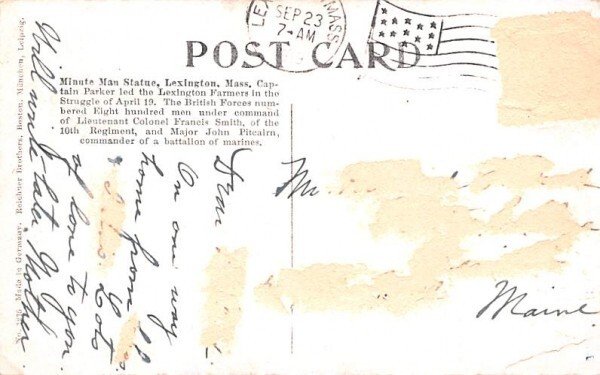 LE MASS
SEP 23
7-AM
POST CARD
Minute Man Statue, Lexington, Mass, Cap-
tain Parker led the Lexington Farmers in the
Struggle of April 19. The British Forces num-
bered Eight hundred men under command
of Lieutenant Colonel Francis Smith, of the
10th Regiment, and Major John Pitcairn,
commander of a battalion of marines.
Made in Germany. Reichner Brothers, Boston, München, Leipzig.
Dear
On our way
home from
Lots
of love to you.
Will write later
Mother
Maine